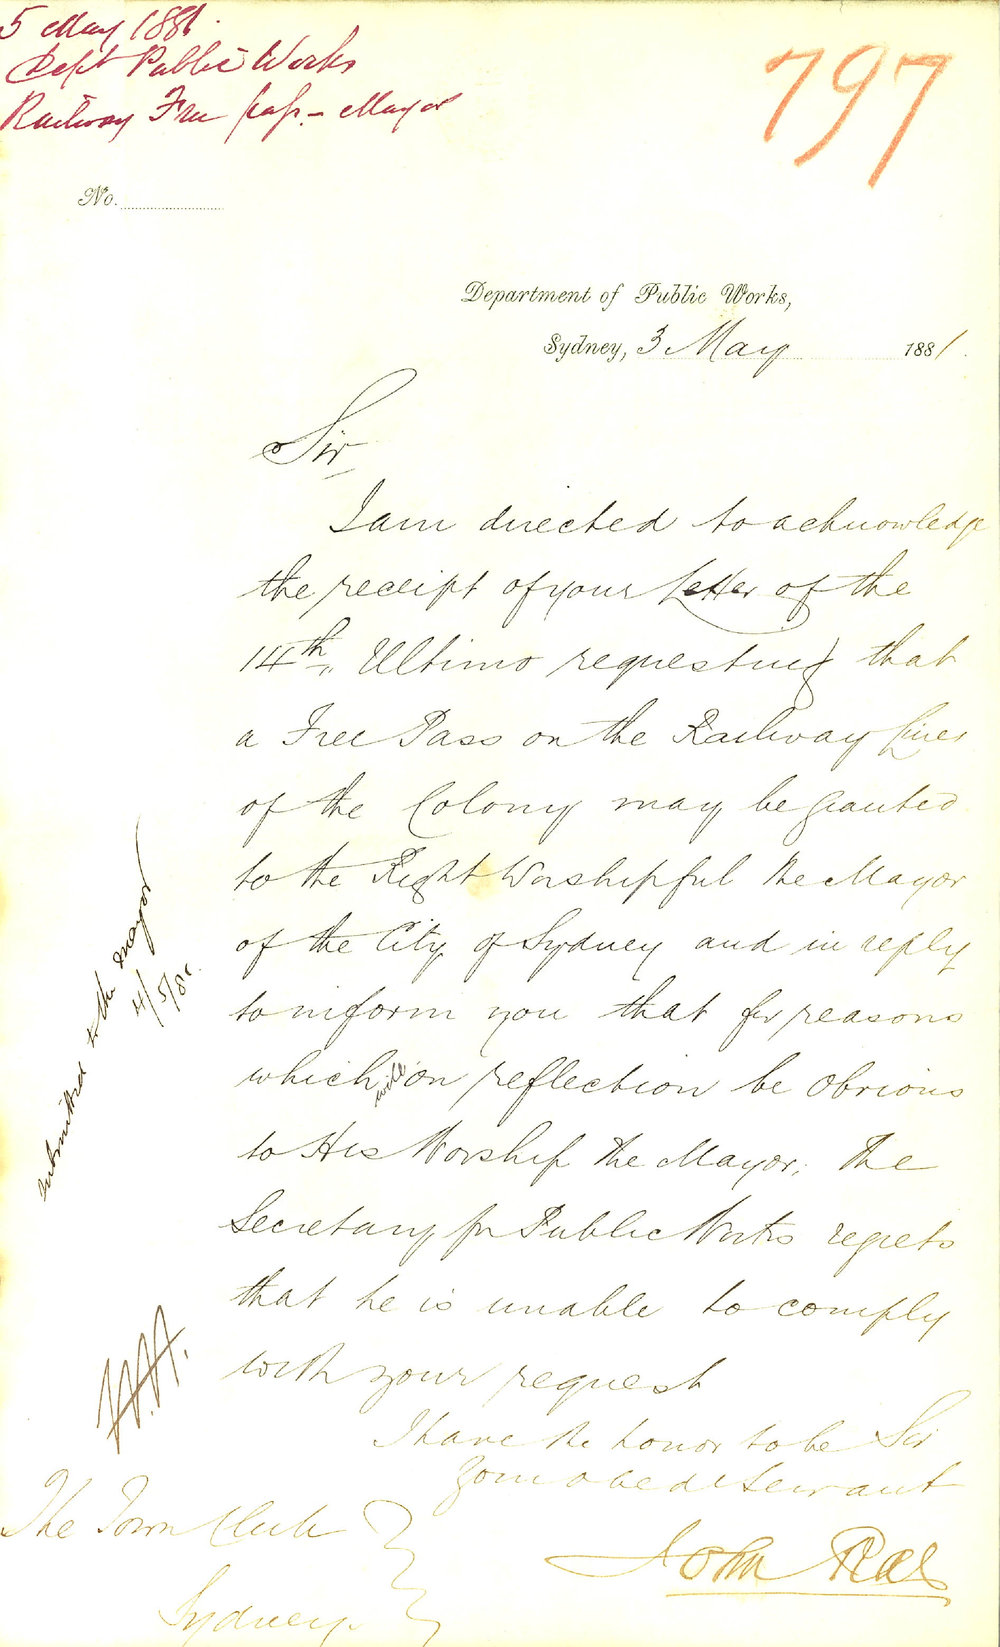 5 May 1881.
Dept Public Works
Railway Free pass - Mayor
797
No.
Department of Public Works,
Sydney, 3 May 1881.
Sir,
I am directed to acknowledge
the receipt of your Letter of the
14th Ultimo requesting that
a Free Pass on the Railway Lines
of the Colony may be granted
to the Right Worshipful the Mayor
of the City of Sydney and in reply
to inform you that for reasons
which will on reflection be obvious
to His Worship the Mayor, the
Secretary for Public Works regrets
that he is unable to comply
with your request
I have the honor to be Sir
Your obedt Servant
John Rae
The Town Clerk
Sydney.
submitted to the mayor
4/5/81.